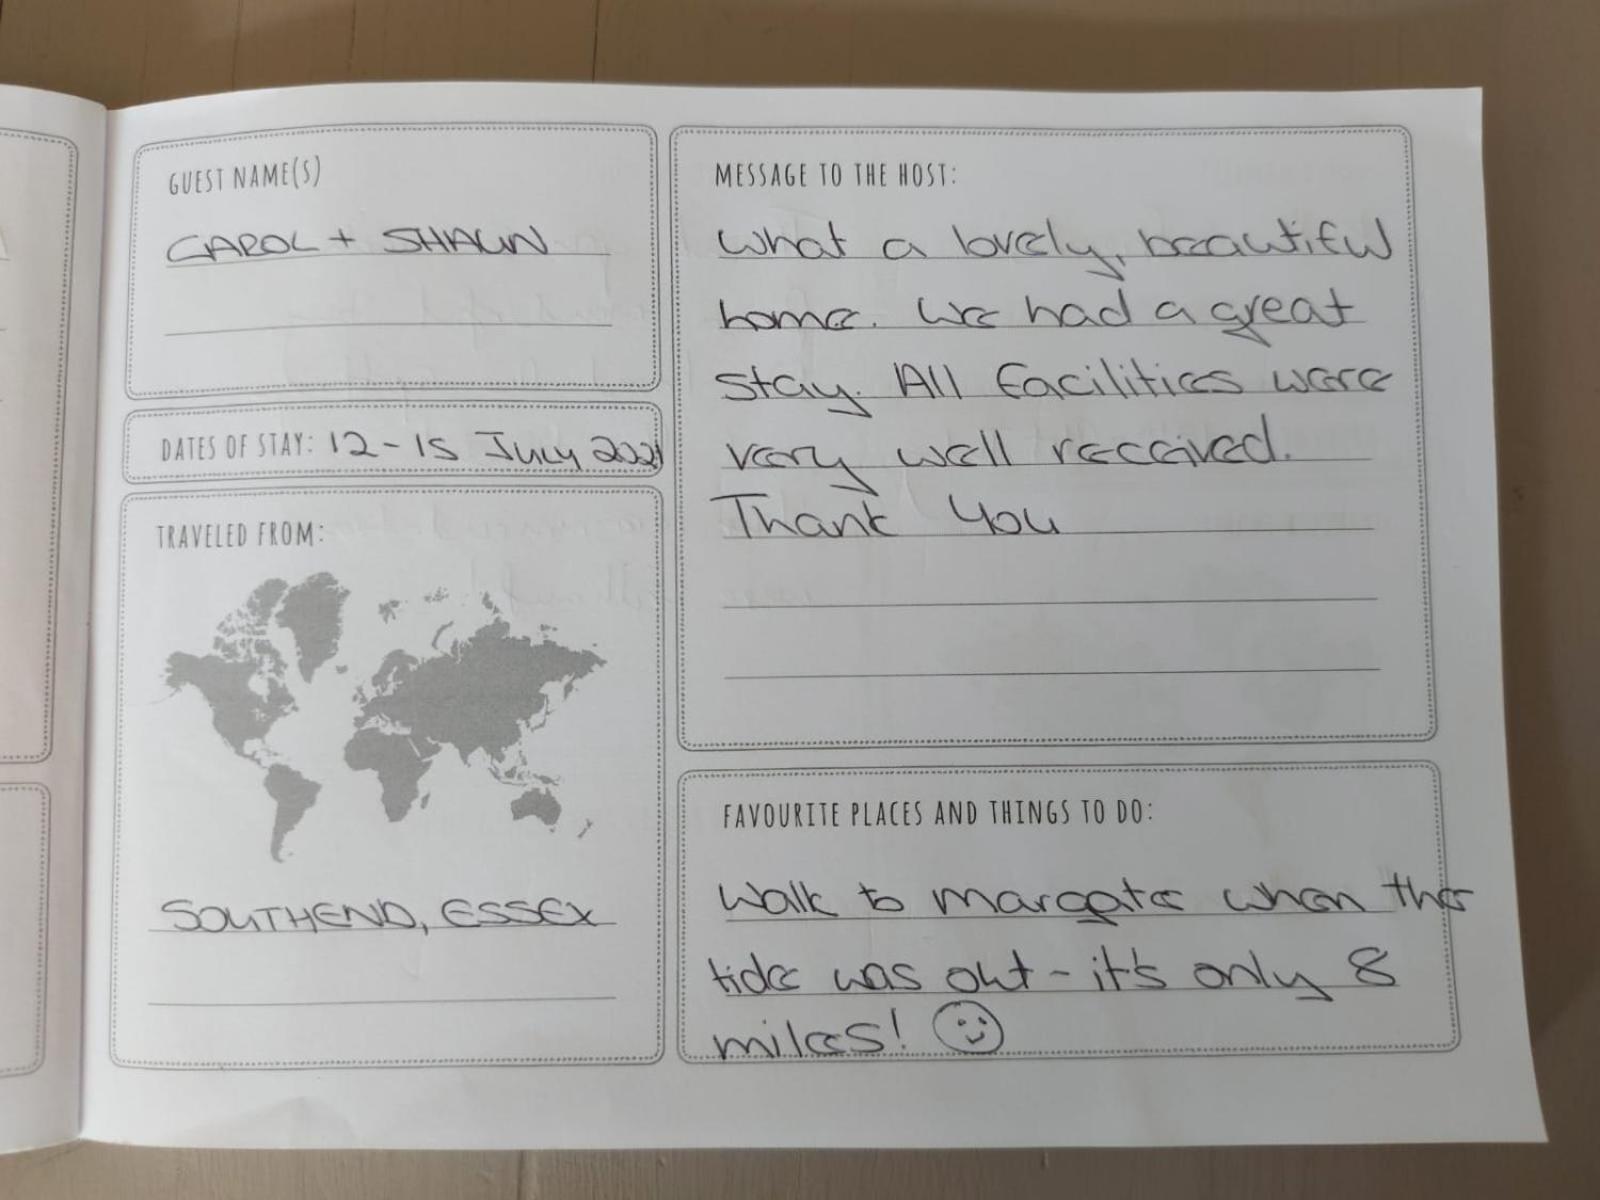 GUEST NAME(S)
CAROL + SHAUN
DATES OF STAY: 12-15 July 2021
TRAVELED FROM:
SOUTHEND, ESSEX
MESSAGE TO THE HOST:
What a lovely, beautiful
home. We had a great
stay. All facilities were
very well received.
Thank You
FAVOURITE PLACES AND THINGS TO DO:
Walk to margate when the
tide was out - it's only 8
miles!